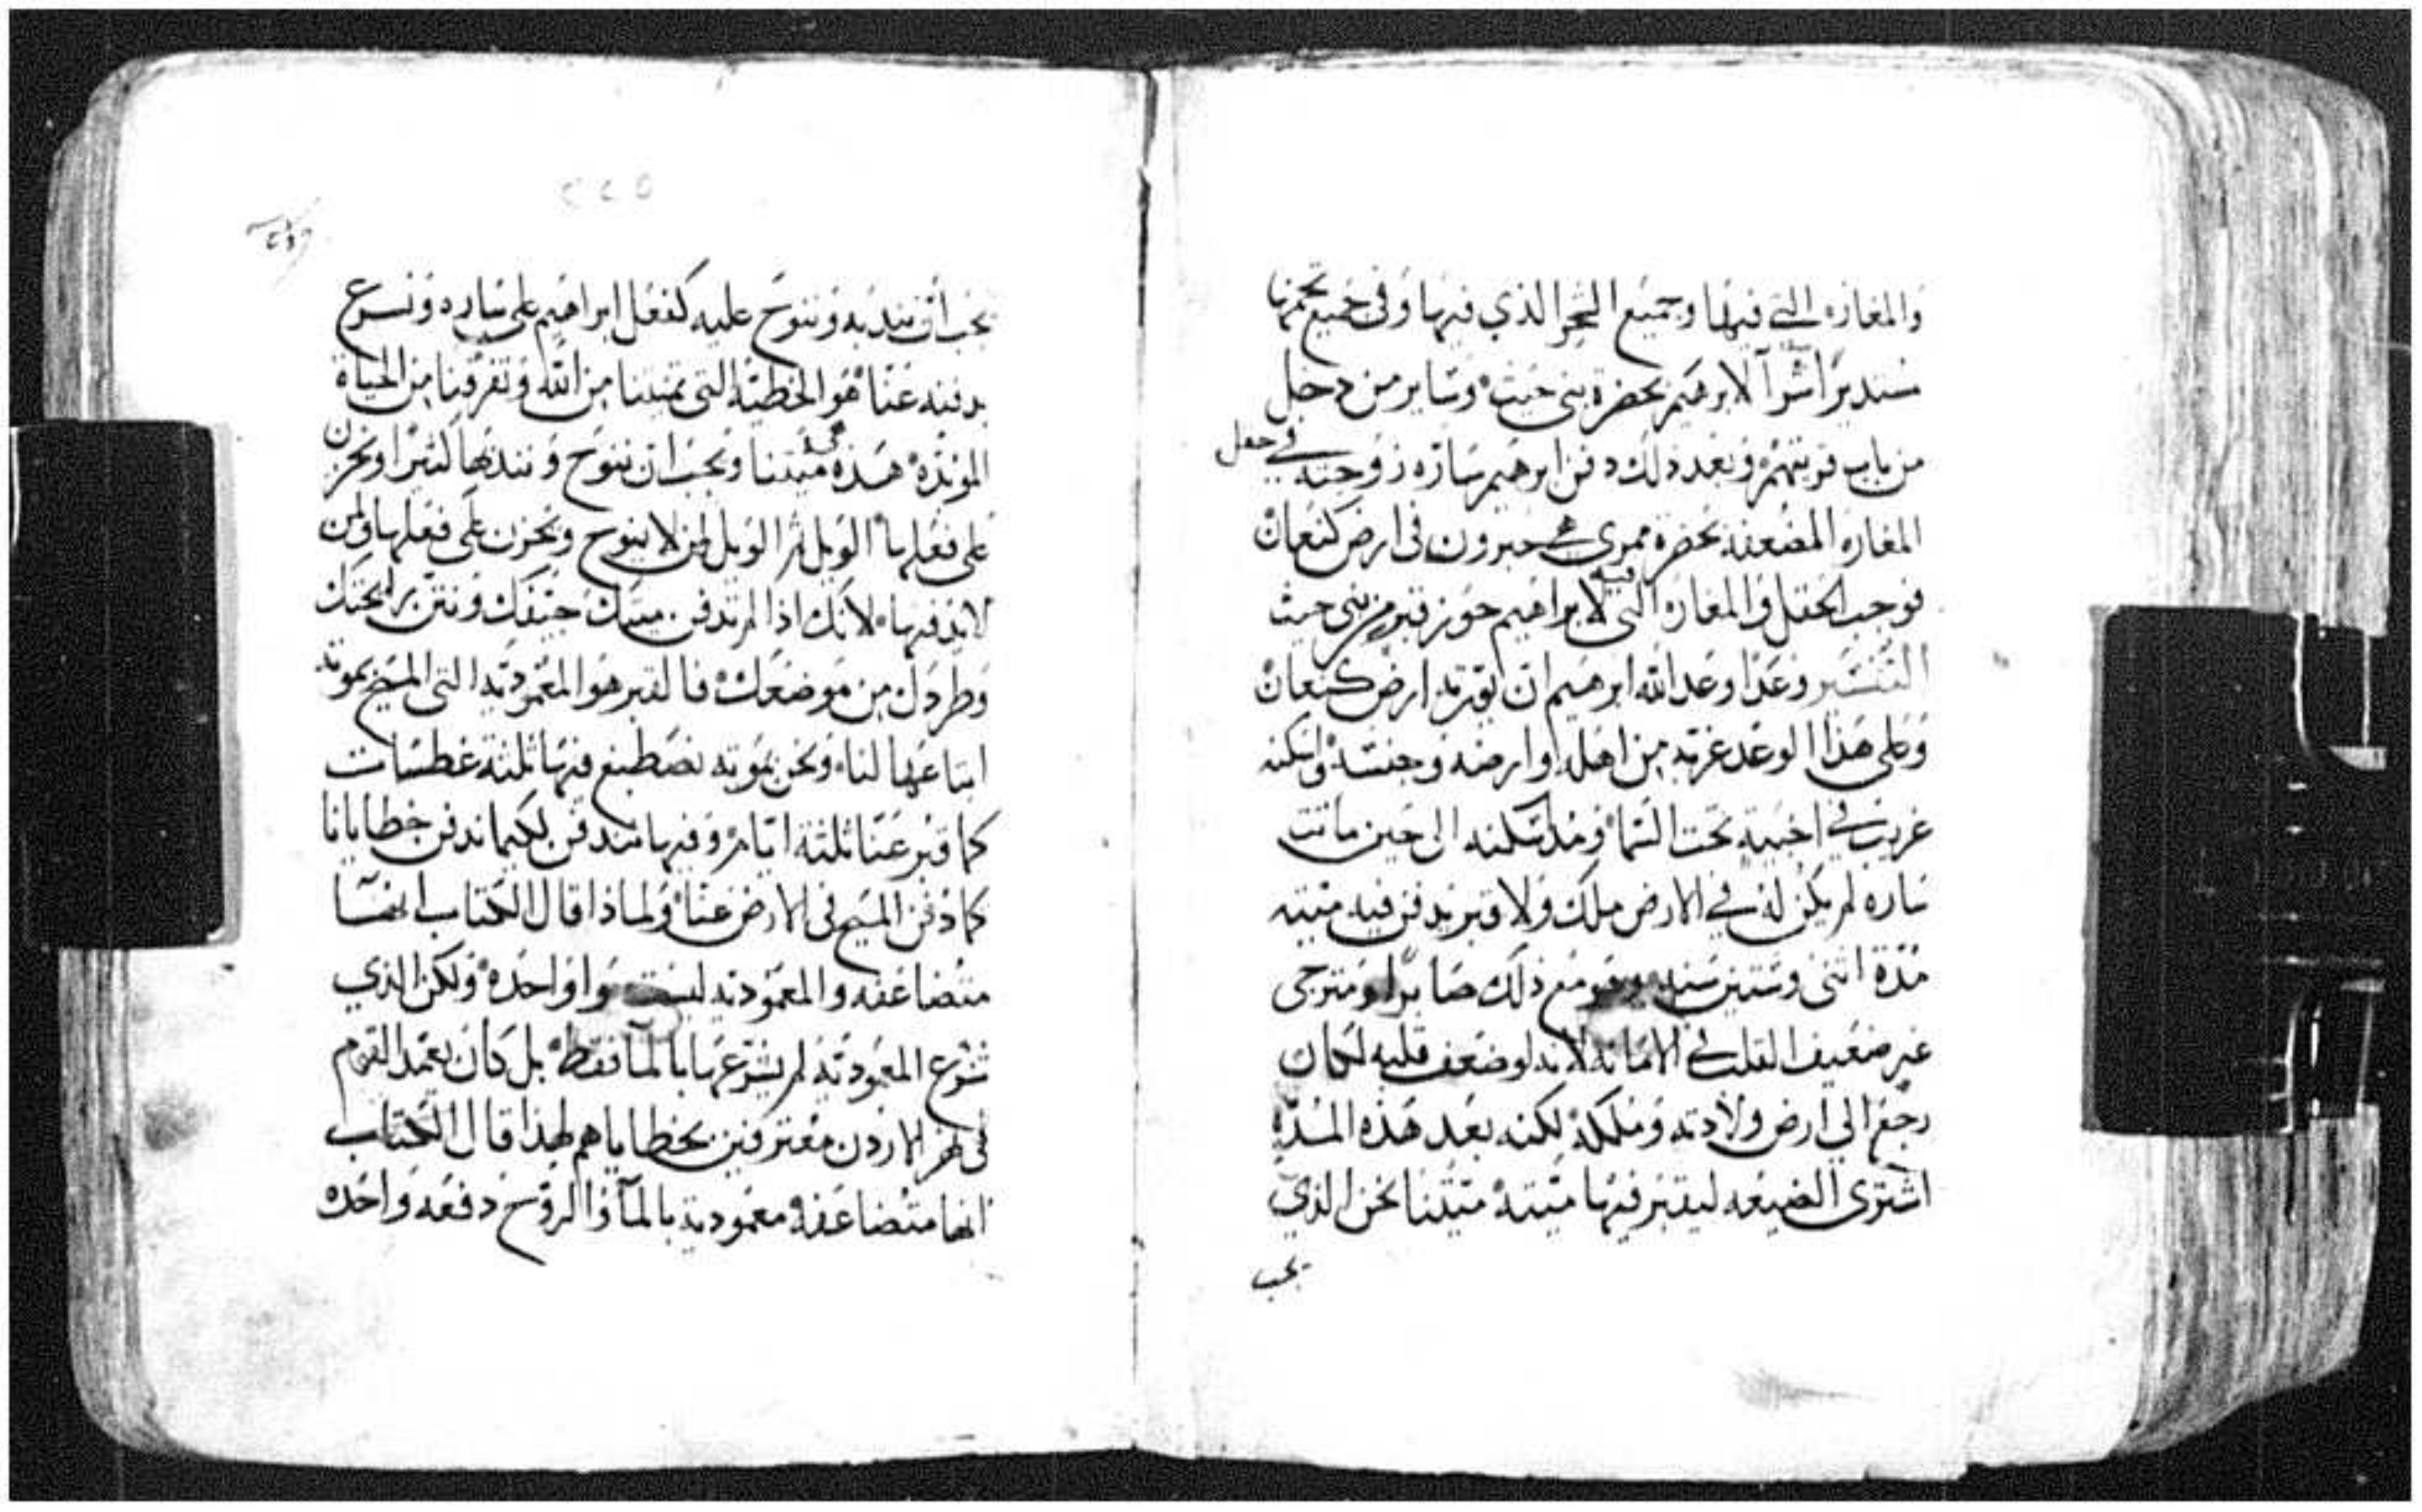 والمغاره التي فيها وجميع الشجر الذي فيها وفي جميع تخمها
مستديرا شرآ لابرهيم بحضرة بني حيث وساير من دخل
من باب قريتهم وبعد ذلك دفن ابرهيم ساره زوجته في حقل
المغاره المضعفة بحضرة ممرى هي حبرون في ارض كنعان
فوجب الحقل والمغاره التي فيه لابراهيم حوز قبر من بني حيث
التفسير وعدا وعد الله ابرهيم ان يورثه ارض كنعان
وعلى هذا الوعد غربه من اهله وارضه وجنسه واسكنه
غريب في اخبية تحت السما ومذ سكنه الى حين ماتت
ساره لم يكن له في الارض ملك ولا قبر يدفن فيه ميته
مدة اثنى وستين سنه وهو مع ذلك صابرا ومترجى
غير ضعيف القلب في الامانة لانه لو ضعف قلبه لكان
رجع الي ارض ولادته وملكه لكنه بعد هذه المده
اشترى الضيعه ليقبر فيها ميته ميتنا نحن الذي
يجب
٢٢٥
يجب ان نندبه وننوح عليه كفعل ابراهيم على ساره ونسرع
بدفنه عنا هو الخطية التي تميتنا من الله وتفرقنا من الحياة
الموبده هذه هي ميتتنا ويجب ان ننوح ونندبها كثيرا ونحزن
على فعلها الويل ثم الويل لمن لا ينوح ويحزن على فعلها ولمن
لا يدفنها لانك اذا لم تدفن ميتك جيفك ونتن برايحتك
وطردك من موضعك فالقبر هو المعموديه التي المسيح بموته
ابتاعها لنا ونحن بموته نصطبغ فيها ثلثة غطسات
كما قبر عنا ثلثة ايام وفيها نندفن لكيما ندفن خطايانا
كما دفن المسيح في الارض عنا ولماذا قال الكتاب انها
متضاعفه والمعموديه ليست هوا واحده ولكن الذي
شرع المعموديه لم يشرعها بالما فقط بل كان يعمد القوم
في نهر الاردن معترفين بخطاياهم لهذا قال الكتاب
انها متضاعفه معمودية بالمآ والروح دفعه واحده